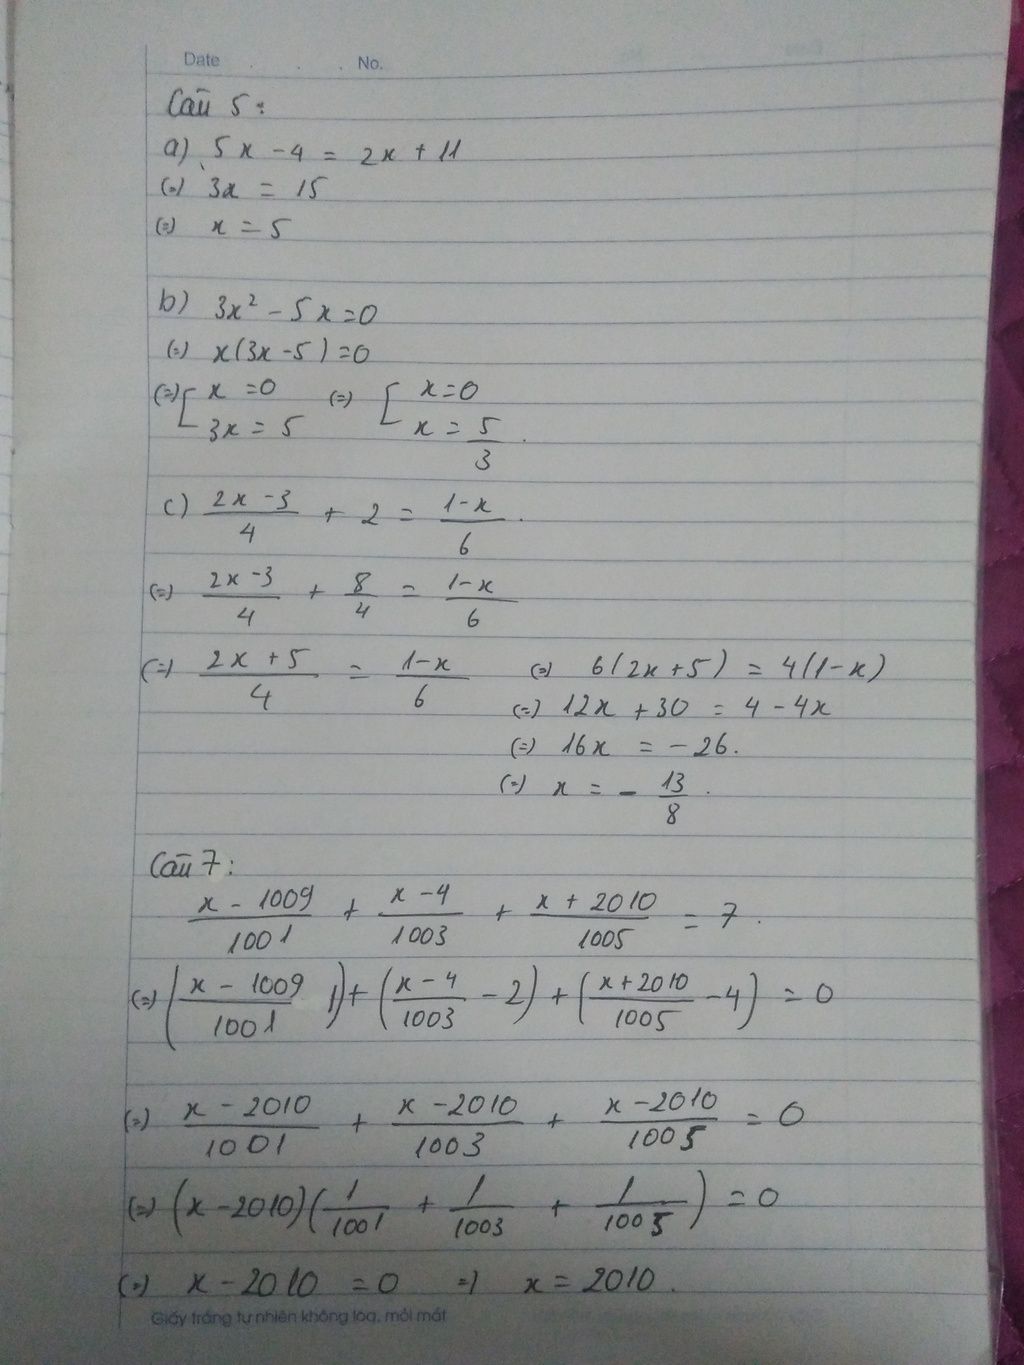 Date . . . No.
Câu 5:
a) 5x - 4 = 2x + 11
(=) 3x = 15
(=) x = 5
b) 3x² - 5x = 0
(=) x(3x - 5) = 0
(=) [ x = 0 ; 3x = 5 (=) [ x = 0 ; x = 5/3 .
c) (2x - 3)/4 + 2 = (1 - x)/6 .
(=) (2x - 3)/4 + 8/4 = (1 - x)/6
(=) (2x + 5)/4 = (1 - x)/6 (=) 6(2x + 5) = 4(1 - x)
(=) 12x + 30 = 4 - 4x
(=) 16x = - 26.
(=) x = - 13/8 .
Câu 7:
(x - 1009)/1001 + (x - 4)/1003 + (x + 2010)/1005 = 7 .
(=) ((x - 1009)/1001 1) + ((x - 4)/1003 - 2) + ((x + 2010)/1005 - 4) = 0
(=) (x - 2010)/1001 + (x - 2010)/1003 + (x - 2010)/1005 = 0
(=) (x - 2010)(1/1001 + 1/1003 + 1/1005) = 0
(=) x - 2010 = 0 =) x = 2010 .
Giấy trắng tự nhiên không lóa, mỏi mắt